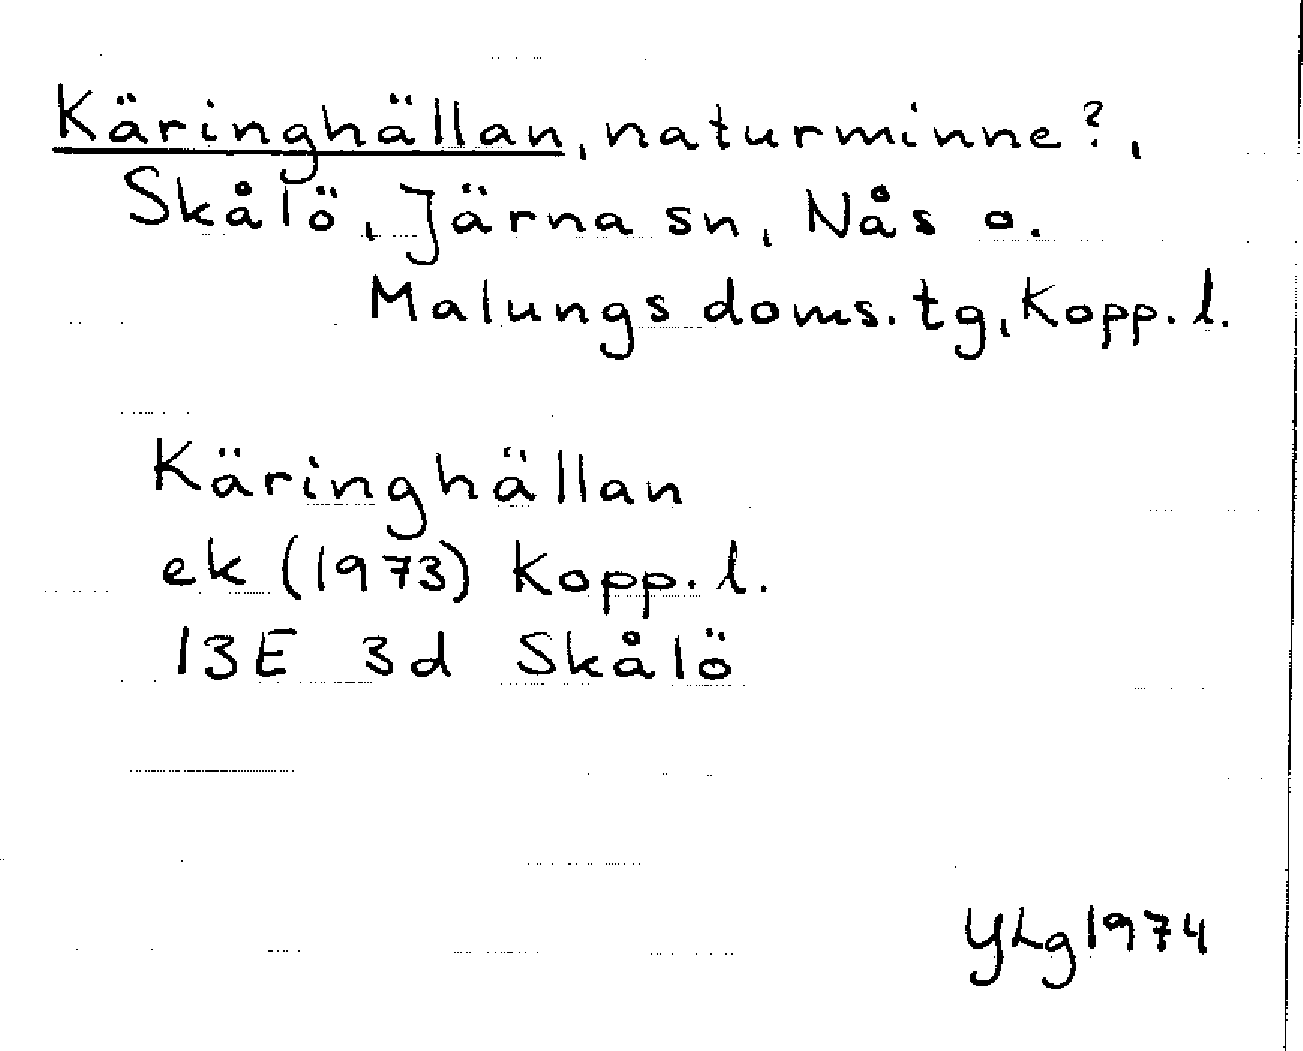 Käringhällan, naturminne?,
Skålö, Järna sn, Nås o.
Malungs doms. tg, Kopp. l.
Käringhällan
ek (1973) Kopp. l.
13E 3d Skålö
YLg 1974